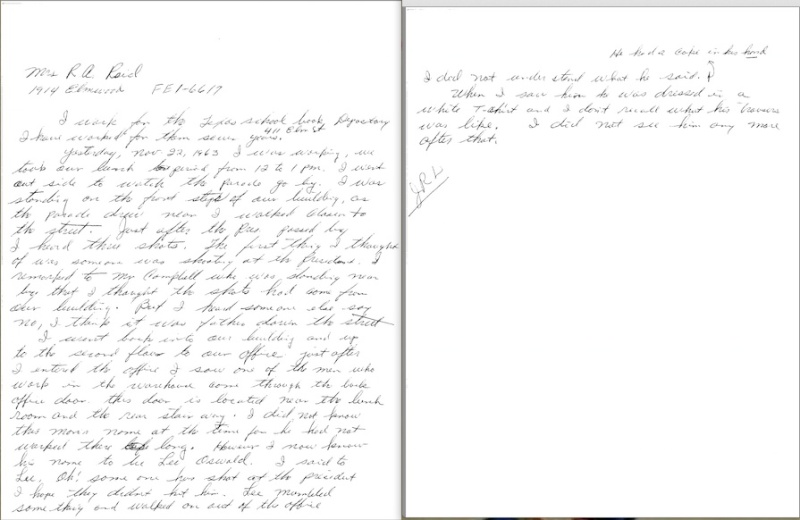 Mrs R A Reid
1914 Elmwood FE1-6617
I work for the Texas school book Depository
411 Elm St
I have worked for them seven years.
Yesterday, Nov 22, 1963 I was working, we
took our lunch period from 12 to 1 PM. I went
out side to watch the parade go by. I was
standing on the front steps of our building, as
the parade drew near I walked closer to
the street. Just after the Pres. passed by
I heard three shots. The first thing I thought
of was someone was shooting at the President. I
remarked to Mr Campbell who was standing near
by that I thought the shots had come from
our building. But I heard someone else say
no, I think it was further down the street
I went back into our building and up
to the second floor to our office just after
I entered the office I saw one of the men who
work in the warehouse come through the back
office door. this door is located near the lunch
room and the rear stair way. I did not know
this mans name at the time for he had not
worked there long. However I now know
his name to be Lee Oswald. I said to
Lee, Oh! some one has shot at the president
I hope they didnt hit him. Lee mumbled
some thing and walked on out of the office
He had a coke in his hand
I did not understand what he said.
When I saw him he was dressed in a
white T-shirt and I don't recall what his trousers
was like. I did not see him any more
after that.